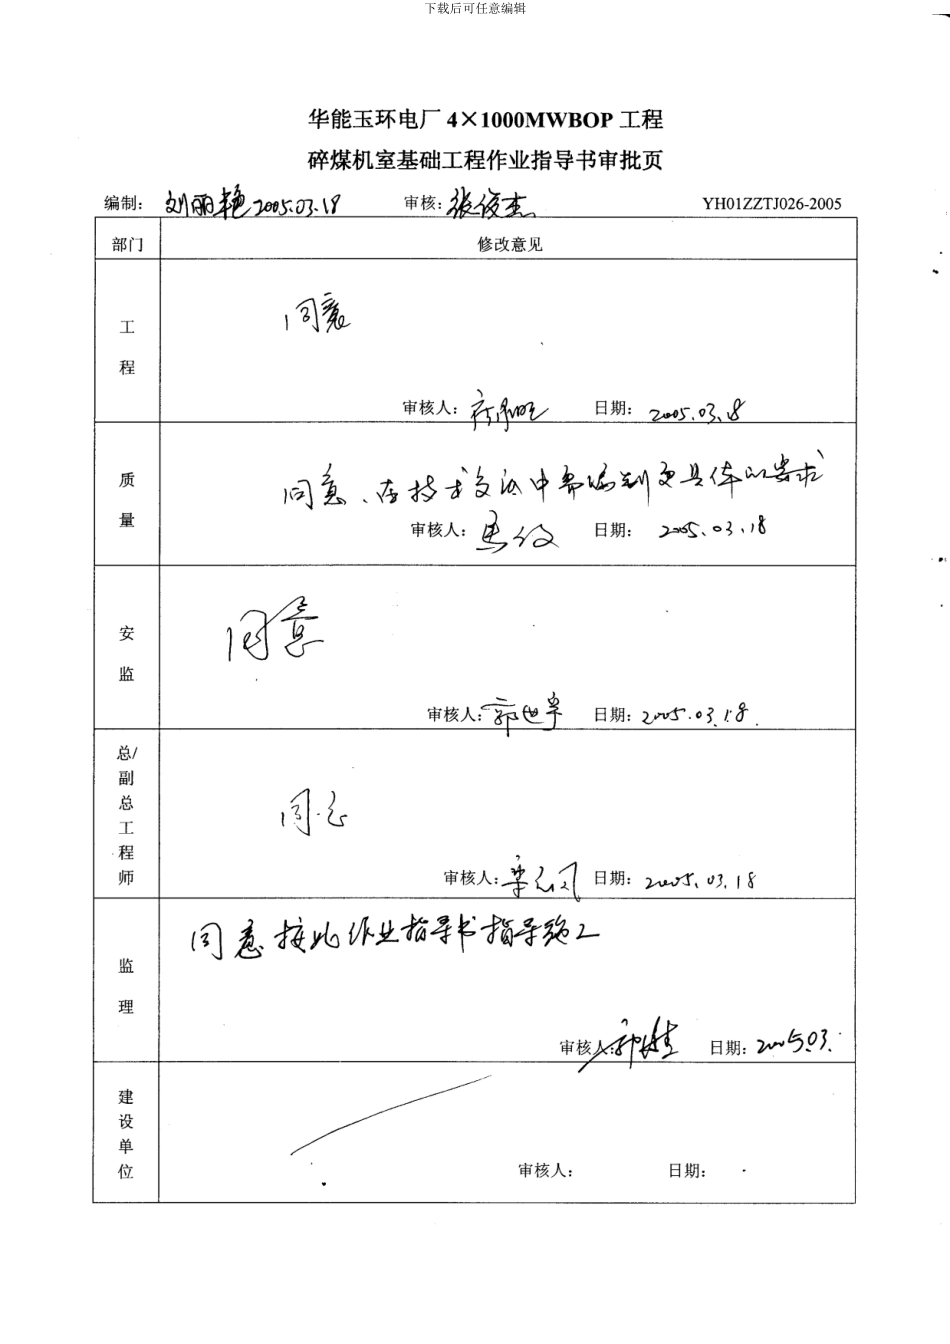 下载后可任意编辑
华能玉环电厂 4×1000MWBOP 工程
碎煤机室基础工程作业指导书审批页
编制: 刘丽艳 2005.03.18 审核: 张俊杰 YH01ZZTJ026-2005
部门 修改意见
工程
同意
审核人: 日期: 2005.03.18
质量
同意、在技术交底中需编制更具体的要求
审核人: 日期: 2005.03.18
安监
同意
审核人: 日期: 2005.03.18
总/副总工程师
同意
审核人: 日期: 2005.03.18
监理
同意按此作业指导书指导施工
审核人: 日期: 2005.03.
建设单位
审核人: 日期: